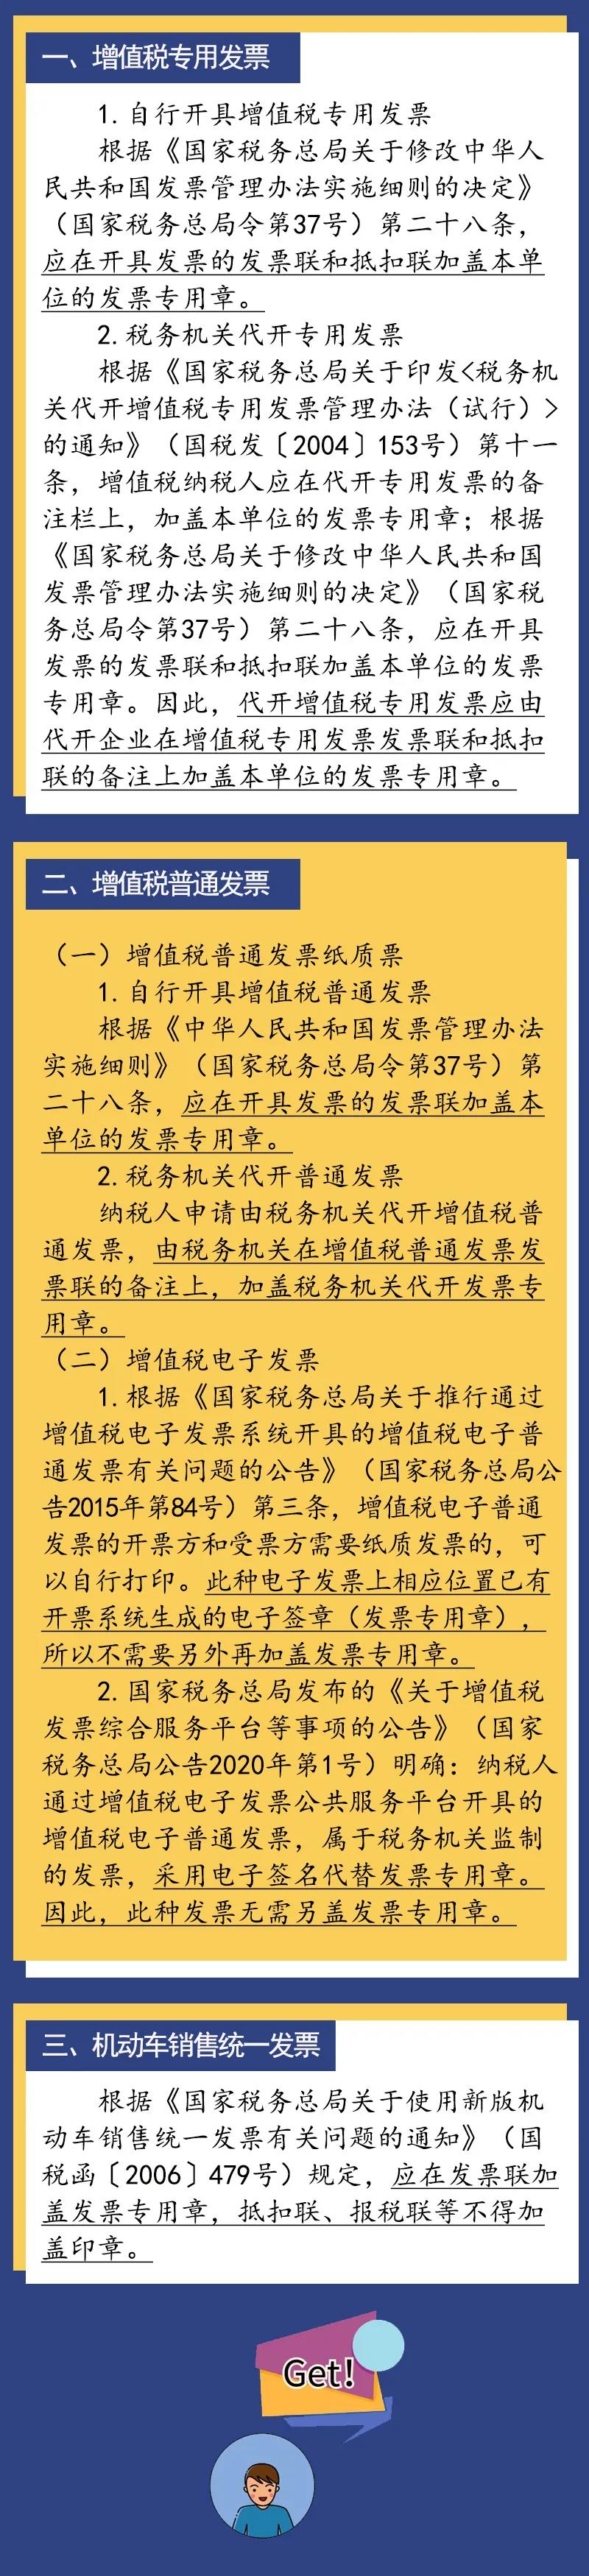 一、增值税专用发票
1.自行开具增值税专用发票
根据《国家税务总局关于修改中华人
民共和国发票管理办法实施细则的决定》
（国家税务总局令第37号）第二十八条，
应在开具发票的发票联和抵扣联加盖本单
位的发票专用章。
2.税务机关代开专用发票
根据《国家税务总局关于印发<税务机
关代开增值税专用发票管理办法（试行）>
的通知》（国税发〔2004〕153号）第十一
条，增值税纳税人应在代开专用发票的备
注栏上，加盖本单位的发票专用章；根据
《国家税务总局关于修改中华人民共和国
发票管理办法实施细则的决定》（国家税
务总局令第37号）第二十八条，应在开具
发票的发票联和抵扣联加盖本单位的发票
专用章。因此，代开增值税专用发票应由
代开企业在增值税专用发票发票联和抵扣
联的备注上加盖本单位的发票专用章。
二、增值税普通发票
（一）增值税普通发票纸质票
1.自行开具增值税普通发票
根据《中华人民共和国发票管理办法
实施细则》（国家税务总局令第37号）第
二十八条，应在开具发票的发票联加盖本
单位的发票专用章。
2.税务机关代开普通发票
纳税人申请由税务机关代开增值税普
通发票，由税务机关在增值税普通发票发
票联的备注上，加盖税务机关代开发票专
用章。
（二）增值税电子发票
1.根据《国家税务总局关于推行通过
增值税电子发票系统开具的增值税电子普
通发票有关问题的公告》（国家税务总局公
告2015年第84号）第三条，增值税电子普通
发票的开票方和受票方需要纸质发票的，可
以自行打印。此种电子发票上相应位置已有
开票系统生成的电子签章（发票专用章），
所以不需要另外再加盖发票专用章。
2.国家税务总局发布的《关于增值税
发票综合服务平台等事项的公告》（国家
税务总局公告2020年第1号）明确：纳税人
通过增值税电子发票公共服务平台开具的
增值税电子普通发票，属于税务机关监制
的发票，采用电子签名代替发票专用章。
因此，此种发票无需另盖发票专用章。
三、机动车销售统一发票
根据《国家税务总局关于使用新版机
动车销售统一发票有关问题的通知》（国
税函〔2006〕479号）规定，应在发票联加
盖发票专用章，抵扣联、报税联等不得加
盖印章。
Get!